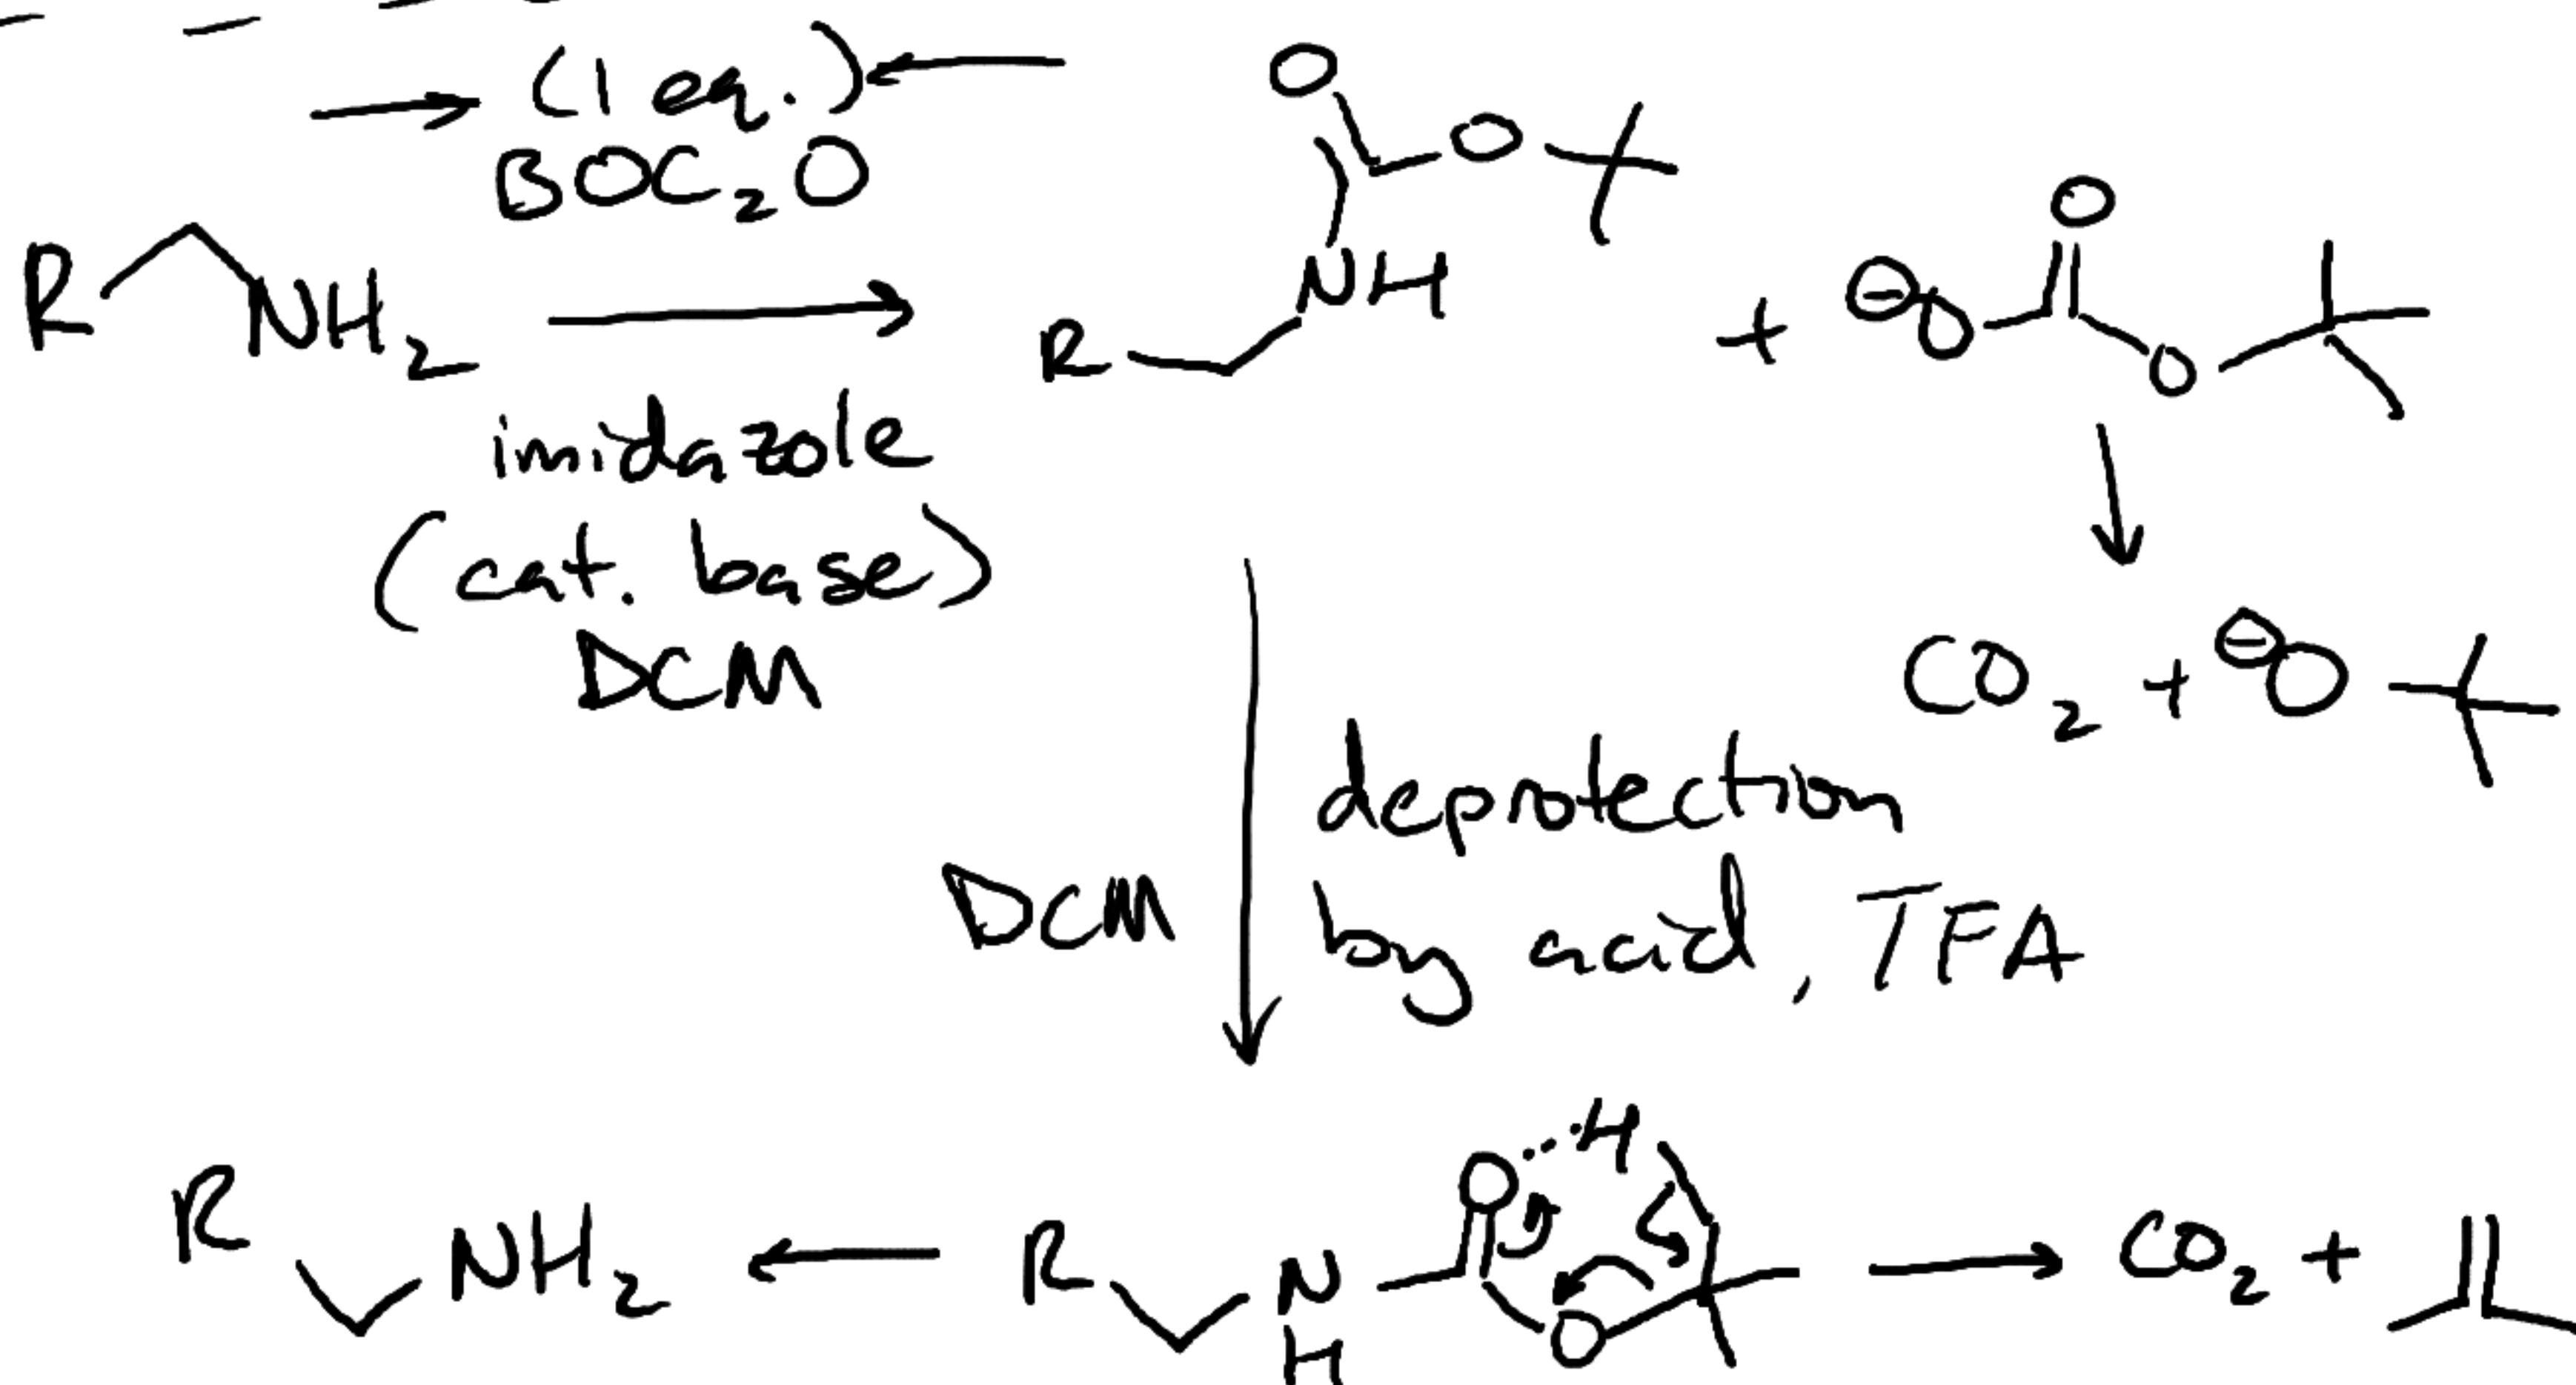 (1 eq.)
BOC₂O
R NH₂
imidazole
(cat. base)
DCM
O
O
NH
R
+ ⊖O O
O
CO₂ + ⊖O
DCM
deprotection
by acid, TFA
R NH₂
R N H
O H
O
CO₂ +